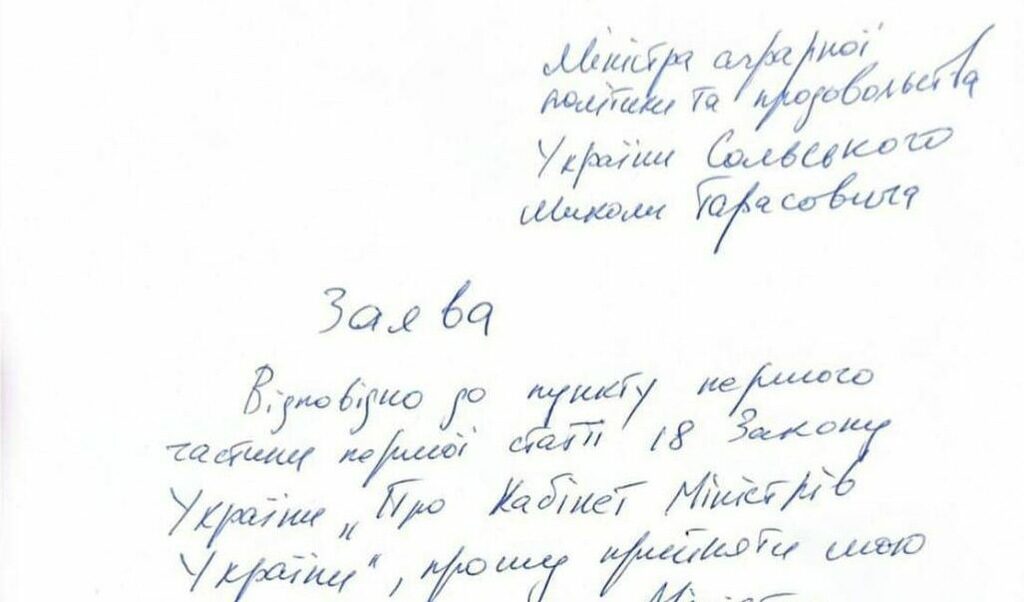 Міністра аграрної
політики та продовольства
України Сольського
Миколи Тарасовича
Заява
Відповідно до пункту першого
частини першої статті 18 Закону
України „Про Кабінет Міністрів
України", прошу прийняти мою